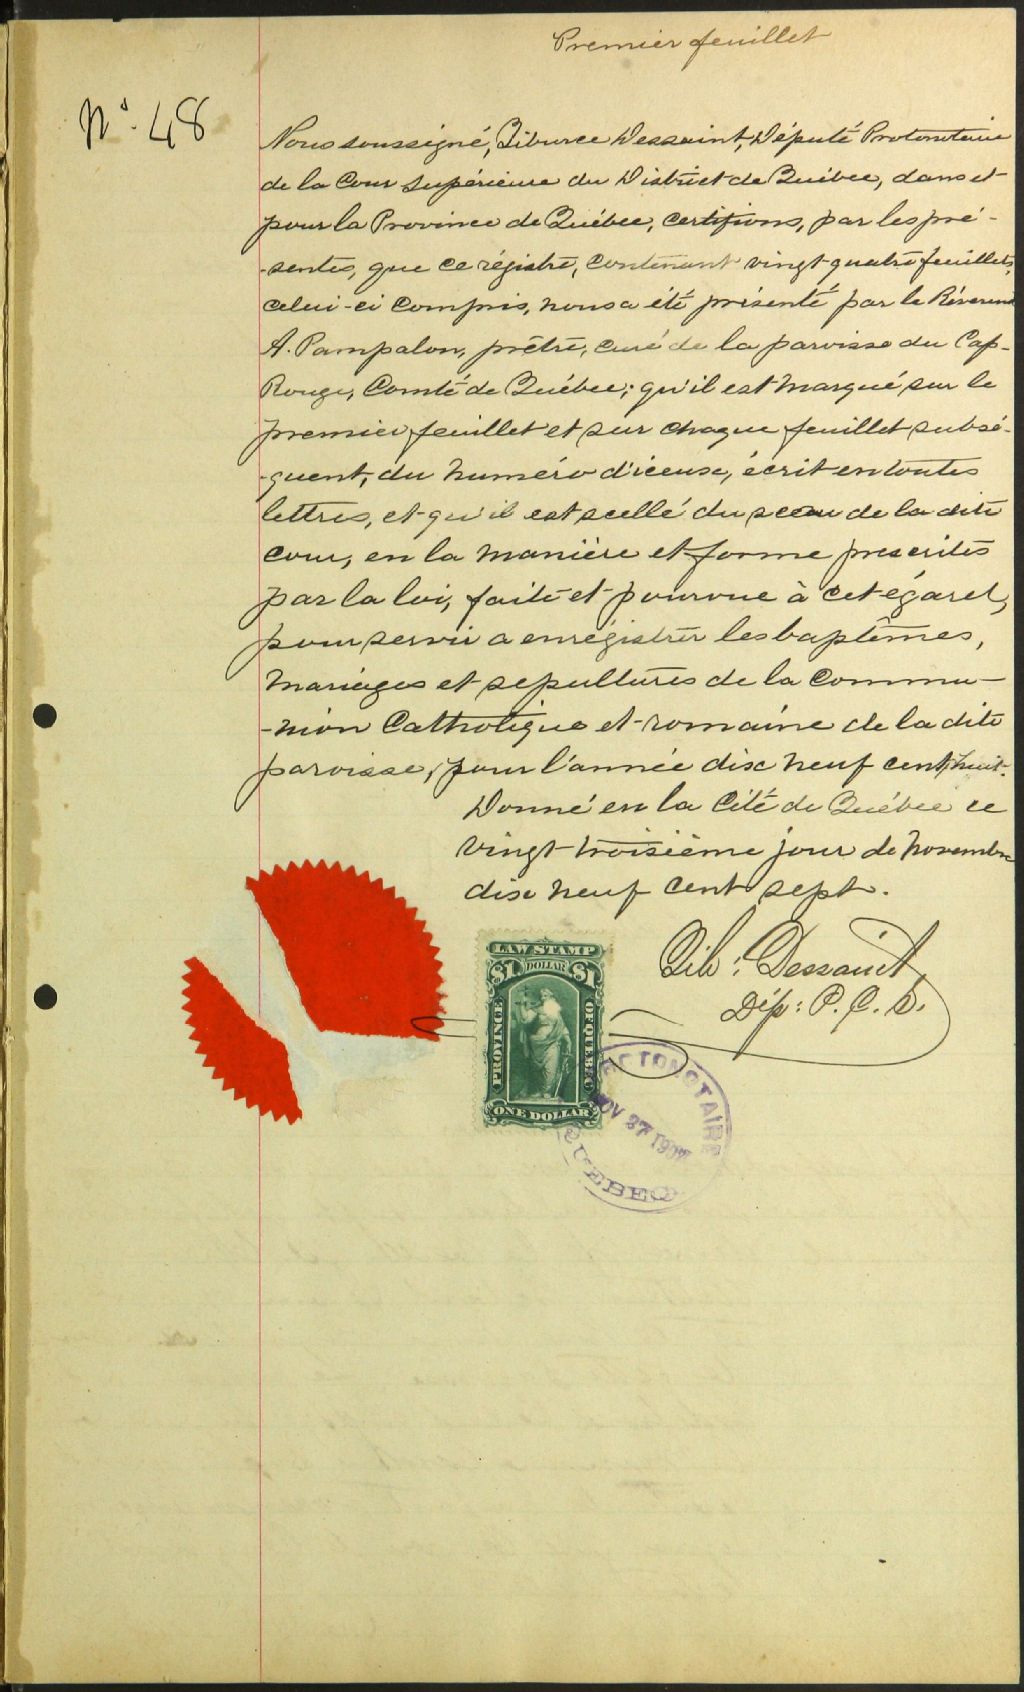 Premier feuillet
No. 48
Nous soussigné, Tiburce Dessaint, Député Protonotaire
de la Cour Supérieure du District de Québec, dans et
pour la Province de Québec, certifions, par les pré-
-sentes, que ce régistre, contenant vingt quatre feuillets,
celui-ci compris, nous a été présenté par le Révérend
A. Pampalon, prêtre, curé de la paroisse du Cap-
Rouge, Comté de Québec; qu'il est marqué sur le
premier feuillet et sur chaque feuillet subsé-
-quent, du numéro d'iceux, écrit en toutes
lettres, et qu'il est scellé du sceau de la dite
cour, en la manière et forme prescrites
par la loi, faite et pourvue à cet égard,
pour servir a enrégistrer les baptêmes,
mariages et sépultures de la Commu-
-nion Catholique et romaine de la dite
paroisse, pour l'année dix neuf cent huit.
Donné en la Cité de Québec ce
vingt-troisième jour de Novembre
dix neuf cent sept.
Tib: Dessaint
Dép: P.C.S.
LAW STAMP
$1 DOLLAR $1
PROVINCE
OF QUEBEC
ONE DOLLAR
PROTONOTAIRE
NOV 27 1907
QUEBEC